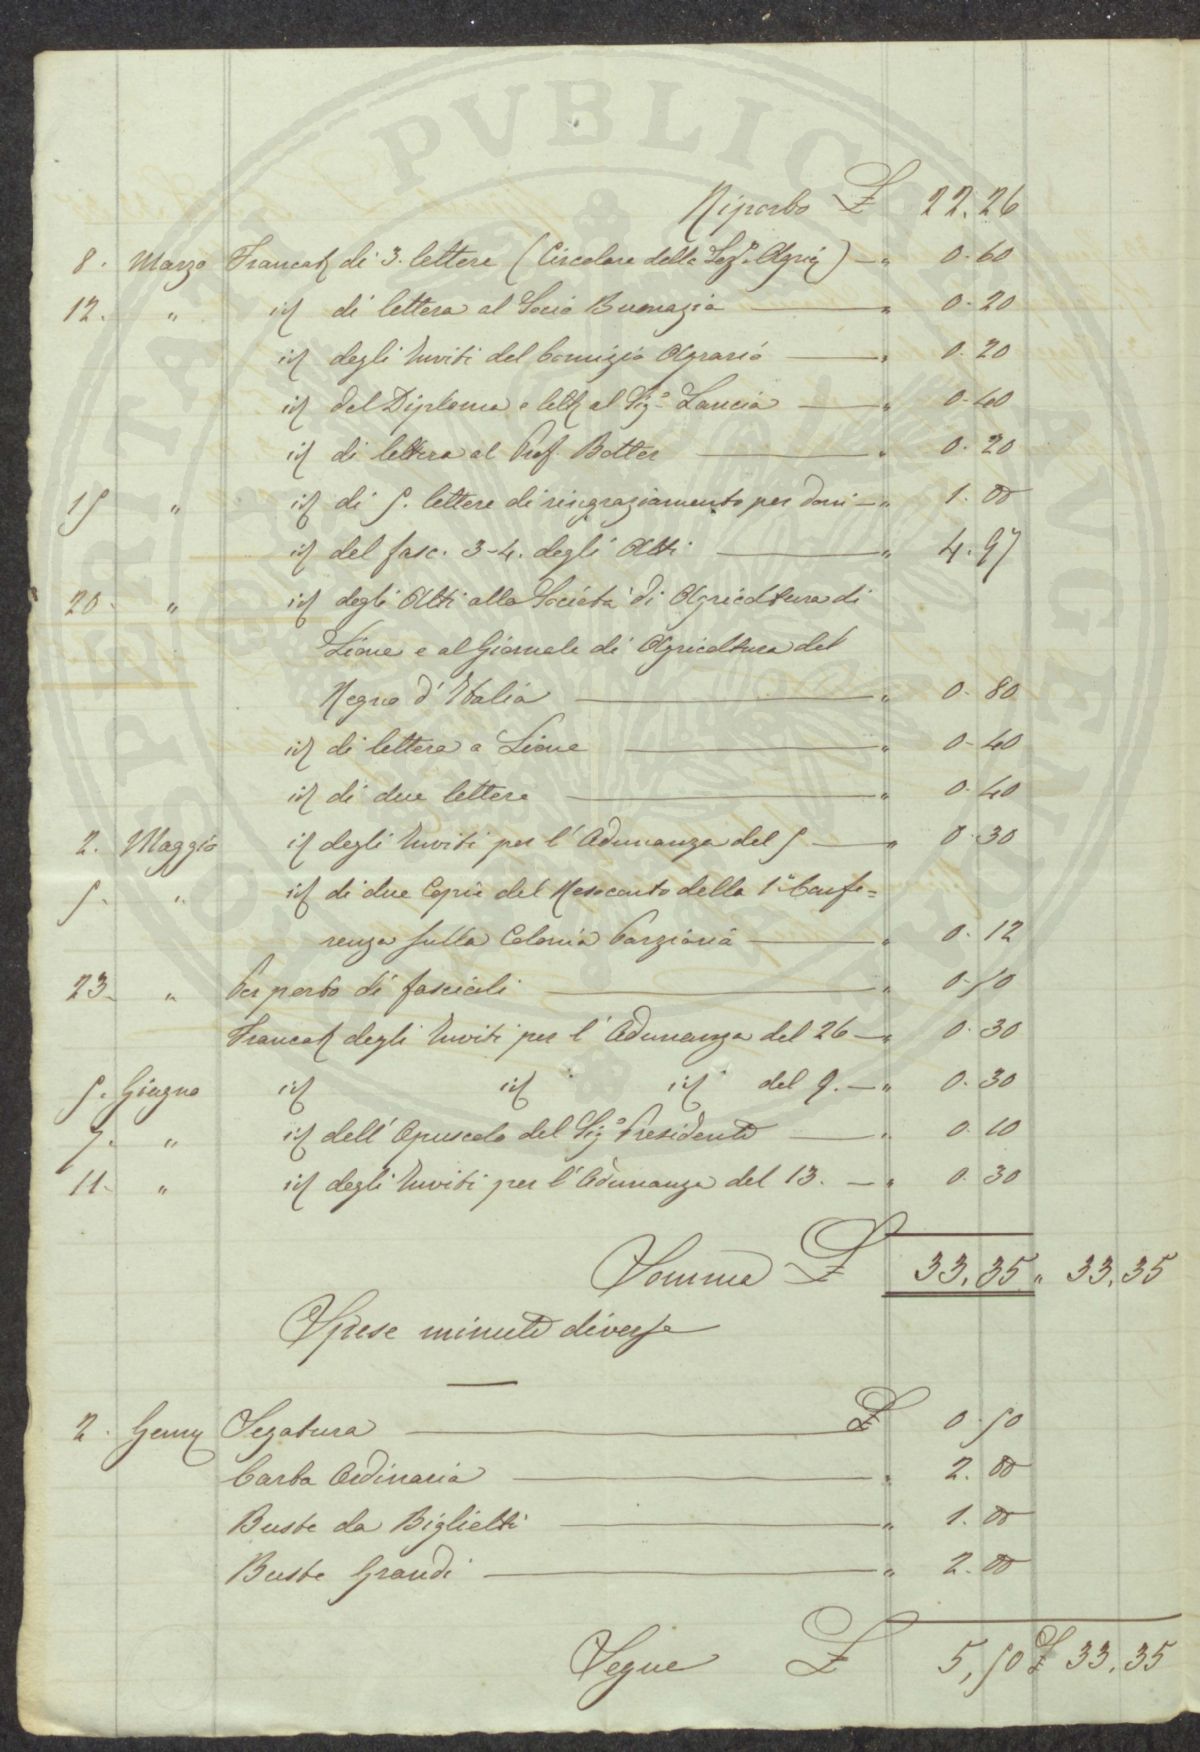 Riporto £ 22.26
8. Marzo Francat. di 3. lettere (Circolare della Soc. Agr.) — " 0.60
12. " id di lettera al Socio Bumazia — " 0.20
id degli Inviti del Comizio Agrario — " 0.20
id del Diploma e lett. al Sig.r Lancia — " 0.40
id di lettera al Prof. Botter — " 0.20
15 " id di 5. lettere di ringraziamento per doni — " 1.00
id del fasc. 3-4. degli Atti — " 4.97
20. " id degli Atti alla Società di Agricoltura di
Lione e al Giornale di Agricoltura del
Regno d'Italia — " 0.80
id di lettera a Lione — " 0.40
id di due lettere — " 0.40
2. Maggio id degli Inviti per l'Adunanza del 5 — " 0.30
5. " id di due Copie del Resoconto della 1a Confe=
renza sulla Colonia Parziaria — " 0.12
23. " Per porto di fascicoli — " 0.50
Francat. degli Inviti per l'Adunanza del 26 — " 0.30
5. Giugno id id id del 9. — " 0.30
7. " id dell'Opuscolo del Sig.r Presidente — " 0.10
11. " id degli Inviti per l'Adunanza del 13. — " 0.30
Somma £ 33,35 " 33,35
Spese minute diverse
2. Genn Segatura — £ 0.50
Carta Ordinaria — " 2.00
Buste da Biglietti — " 1.00
Buste Grandi — " 2.00
Segue £ 5,50 £ 33,35